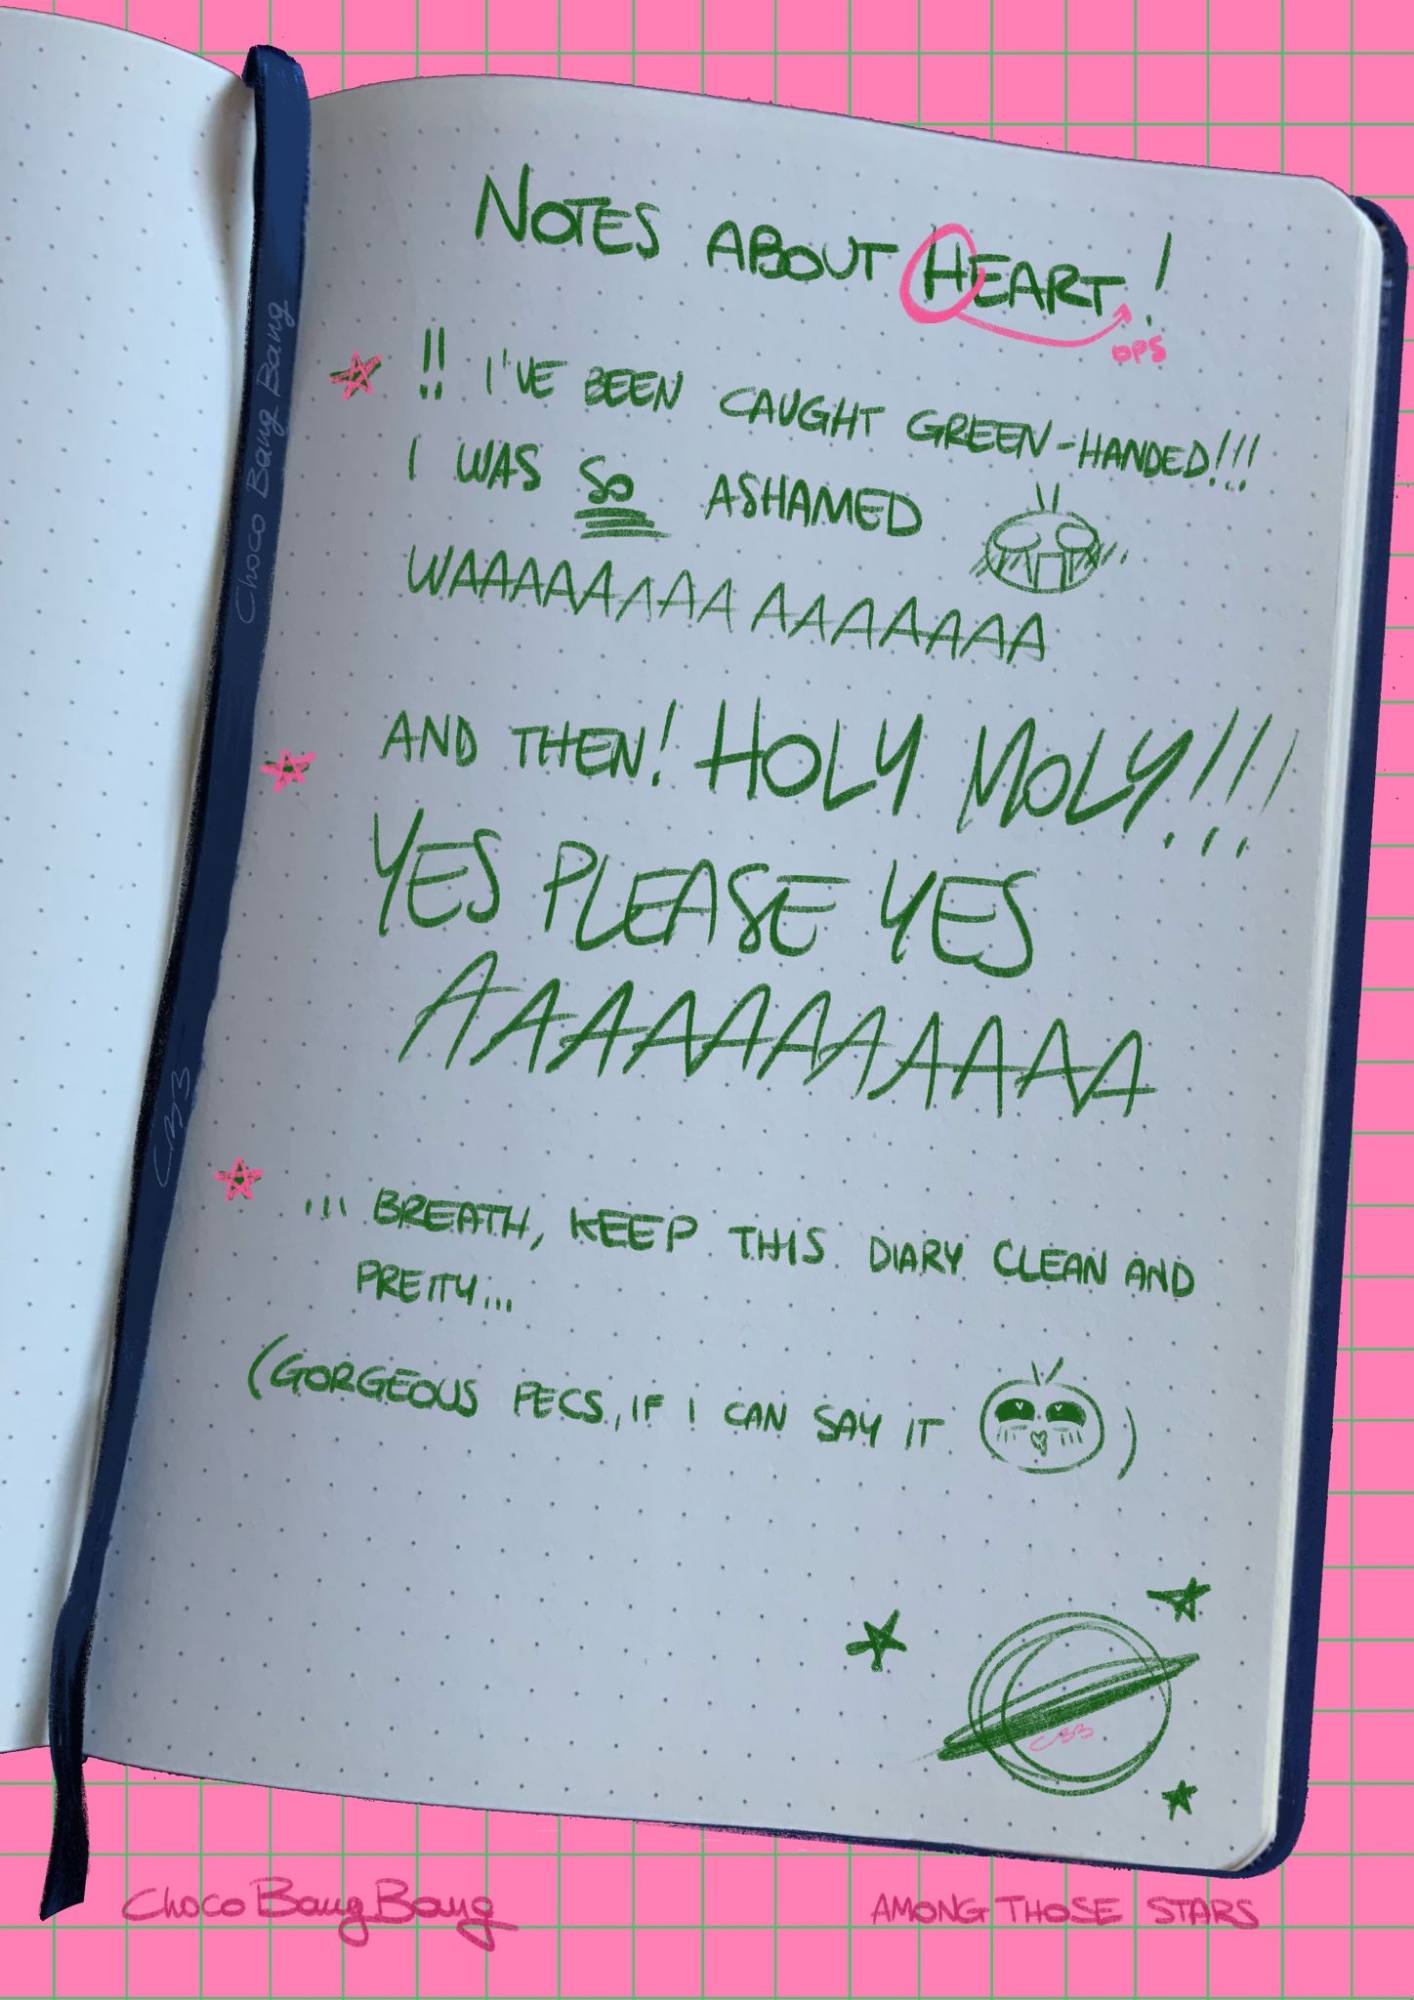 NOTES ABOUT HEART!
OPS
!! I'VE BEEN CAUGHT GREEN-HANDED!!!
I WAS SO ASHAMED
WAAAAAAAA AAAAAAAA
AND THEN! HOLY MOLY!!!
YES PLEASE YES
AAAAAAAAAAAA
... BREATH, KEEP THIS DIARY CLEAN AND
PRETTY...
(GORGEOUS PECS, IF I CAN SAY IT )
Choco Bang Bang
CBB
CBB
Choco Bang Bang
AMONG THOSE STARS